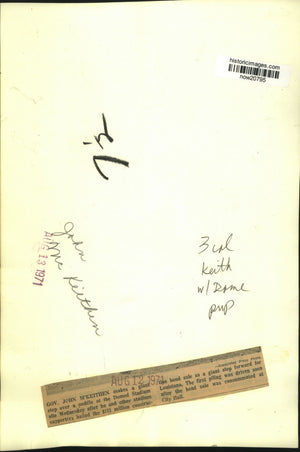 historicimages.com
now20795
3 col
Keith
w/Dome
pup
John
AUG 13 1971
AUG 12 1971
GOV. JOHN McKEITHEN makes a giant
step over a puddle at the Domed Stadium
site Wednesday after he and other stadium
supporters hailed the $113 million construc-
tion bond sale as a giant step forward for
Louisiana. The first piling was driven soon
after the bond sale was consummated at
City Hall.